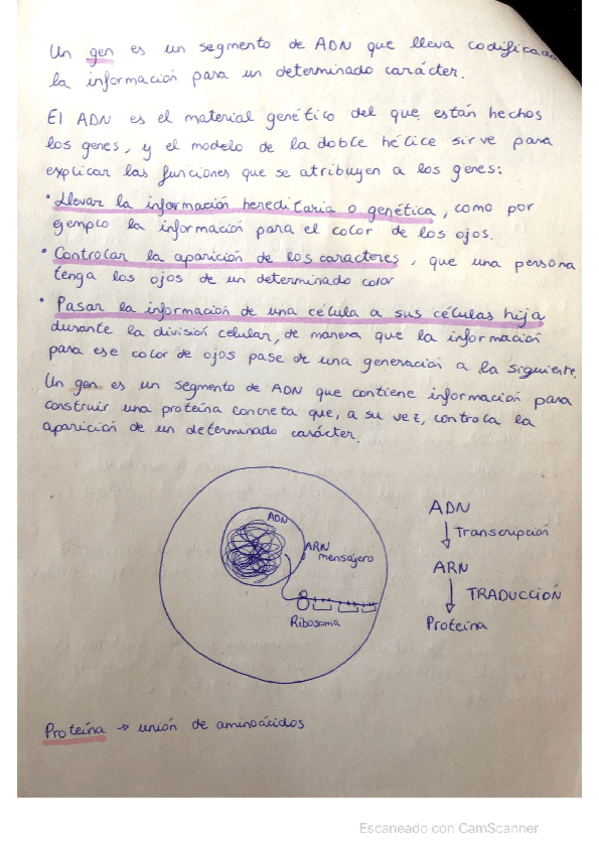 Un gen es un segmento de ADN que lleva codificada
la información para un determinado carácter.
El ADN es el material genético del que están hechos
los genes, y el modelo de la doble hélice sirve para
explicar las funciones que se atribuyen a los genes:
· Llevar la información hereditaria o genética, como por
ejemplo la información para el color de los ojos.
· Controlar la aparición de los caracteres, que una persona
tenga los ojos de un determinado color
· Pasar la información de una célula a sus células hija
durante la división celular, de manera que la información
para ese color de ojos pase de una generación a la siguiente.
Un gen es un segmento de ADN que contiene información para
construir una proteína concreta que, a su vez, controla la
aparición de un determinado carácter.
ADN
ARN
mensajero
Ribosoma
ADN
Transcripción
ARN
TRADUCCIÓN
Proteína
Proteína → unión de aminoácidos
Escaneado con CamScanner